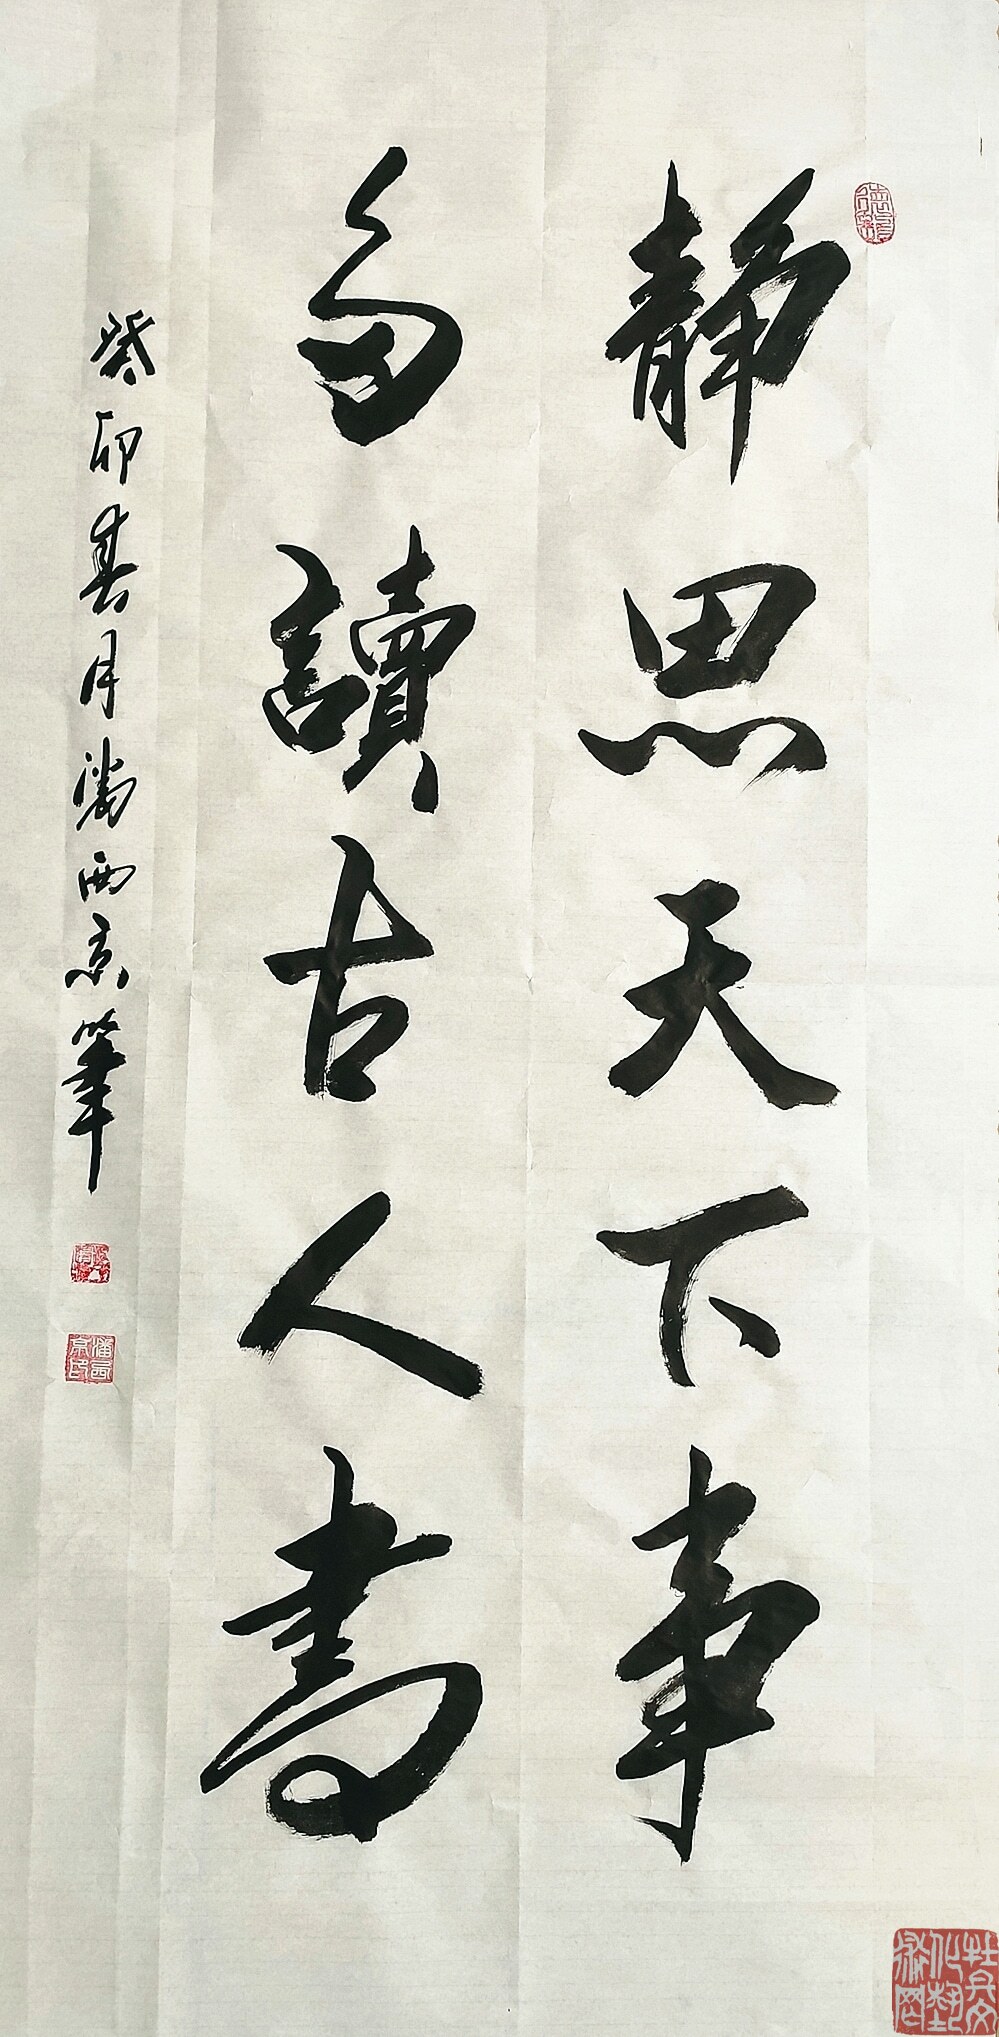 靜思天下事
多讀古人書
癸卯春月潘西京筆
潘西京印